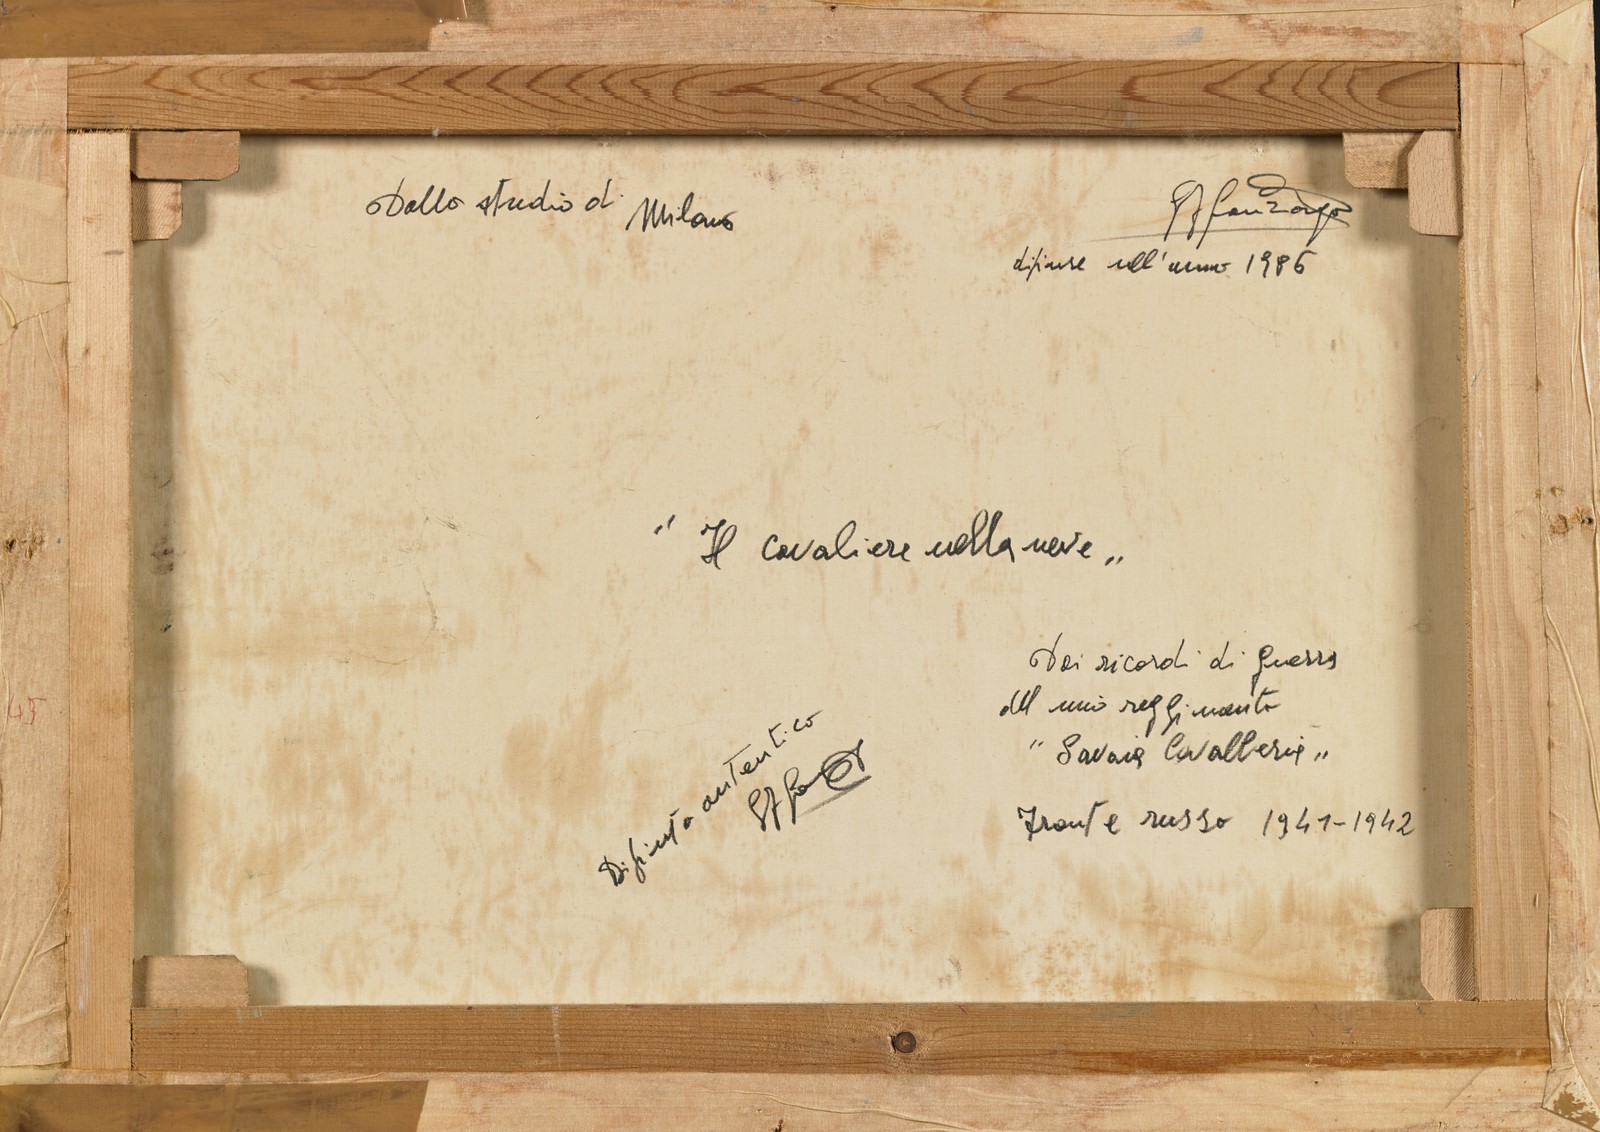 Dallo studio di Milano
dipinse nell'anno 1986
" Il cavaliere nella neve „
Dai ricordi di guerra
del mio reggimento
" Savoia Cavalleria „
Fronte russo 1941-1942
Dipinto autentico
45